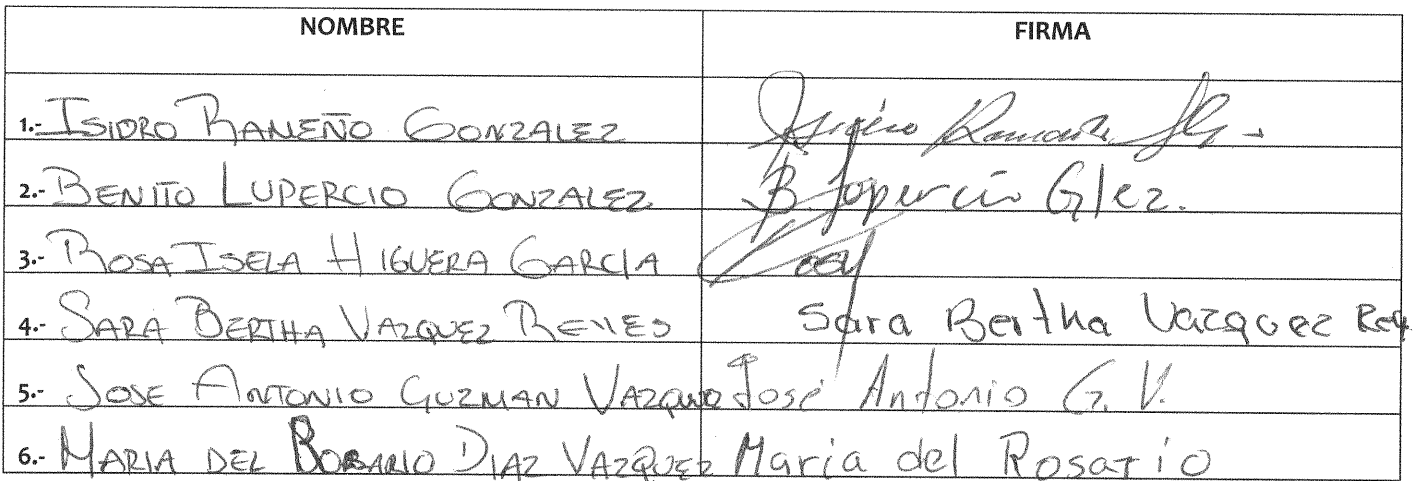 NOMBRE FIRMA
1.- ISIDRO RAMEÑO GONZALEZ
2.- BENITO LUPERCIO GONZALEZ B Lupercio Glez.
3.- ROSA ISELA HIGUERA GARCIA
4.- SARA BERTHA VAZQUEZ REYES Sara Bertha Vazquez Rey
5.- JOSE ANTONIO GUZMAN VAZQUEZ José Antonio G. V.
6.- MARIA DEL ROSARIO DIAZ VAZQUEZ Maria del Rosario